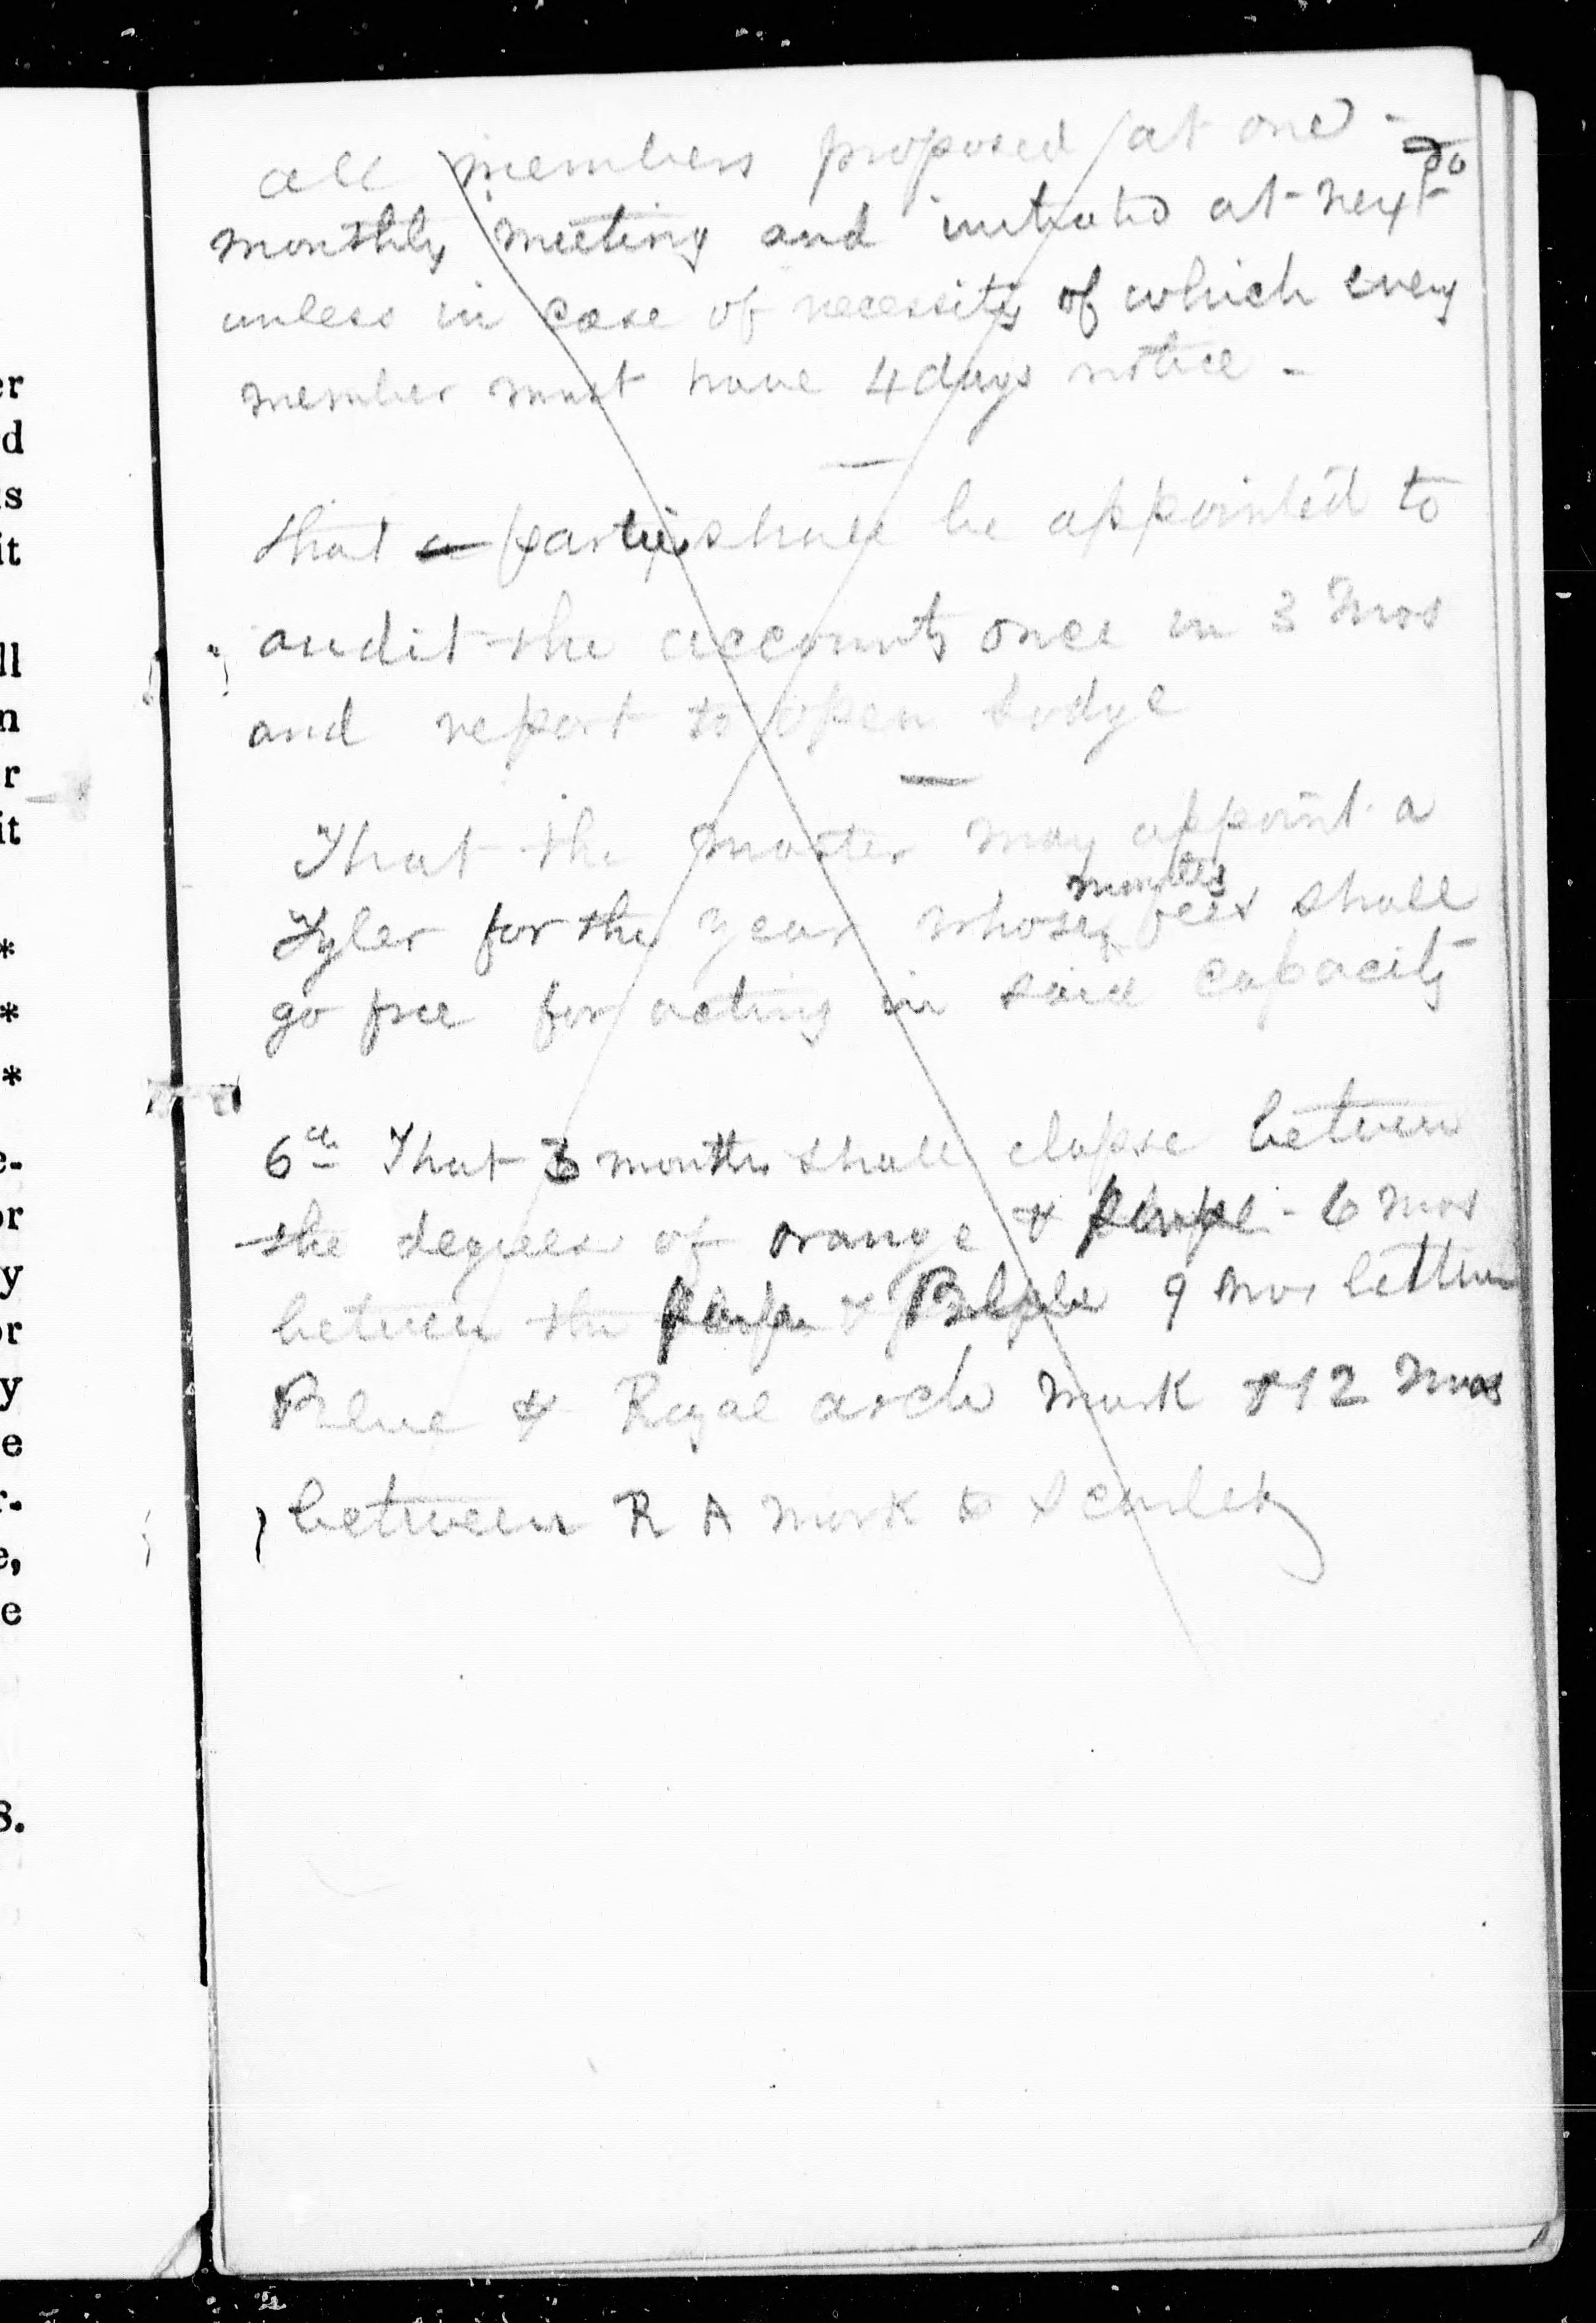 er
d
is
it
ll
n
r
it
*
*
*
e-
or
y
or
y
e
r-
e,
e
8.
all members proposed at one -
do
monthly meeting and initiated at next
unless in case of necessity of which every
member must have 4 days notice -
that a parties shall be appointed to
audit the accounts once in 3 Mos
and report to open Lodge
That the master may appoint a
monthly
Tyler for the year whose fees shall
go free for acting in said capacity
6th That 3 months shall elapse between
the degrees of orange & purple - 6 mos
between the purple & Blue 9 mos between
Blue & Royal arch Mark & 12 mos
between R A Mark & Scarlet